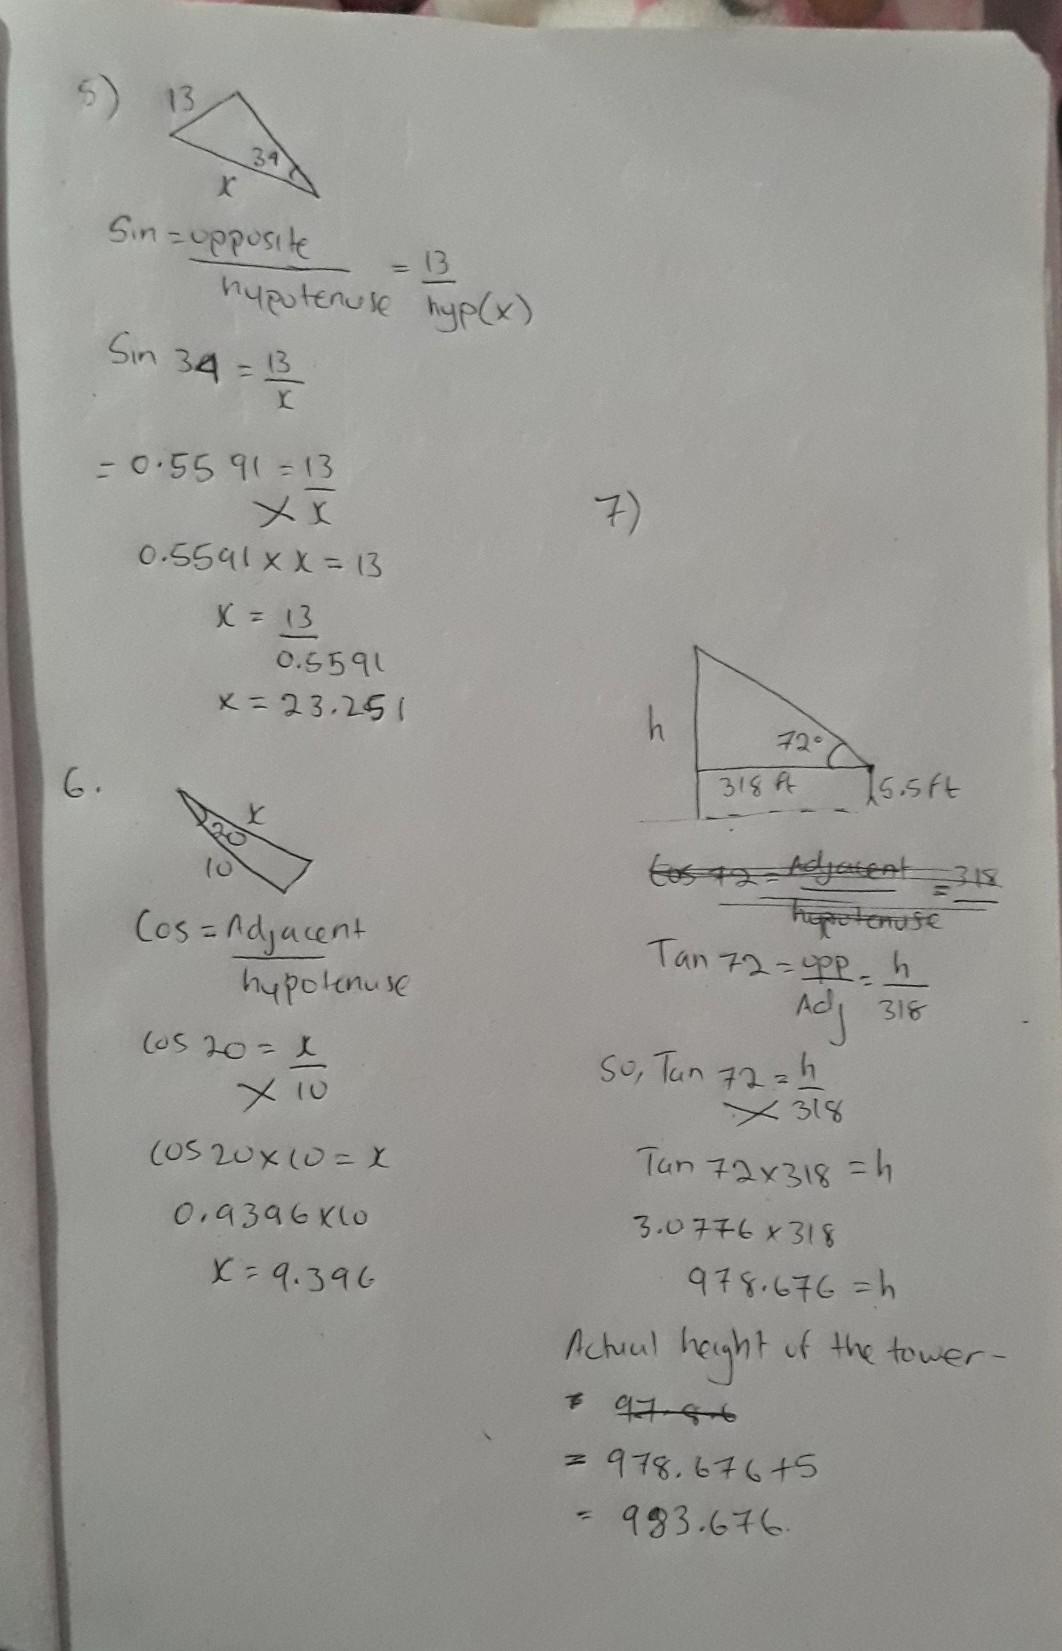 5)
13
34
x
Sin = opposite
hypotenuse
= 13
hyp(x)
Sin 34 = 13
x
= 0.5591 = 13
x
0.5591 × x = 13
x = 13
0.5591
x = 23.251
6.
x
20
10
Cos = Adjacent
hypotenuse
Cos 20 = x
10
Cos 20 × 10 = x
0.9396 × 10
x = 9.396
7)
h
72°
318 ft
5.5 ft
Cos 72 = Adjacent = 318
hypotenuse
Tan 72 = opp = h
Adj 318
So, Tan 72 = h
318
Tan 72 × 318 = h
3.0776 × 318
978.676 = h
Actual height of the tower -
= 97.86
= 978.676 + 5
= 983.676.